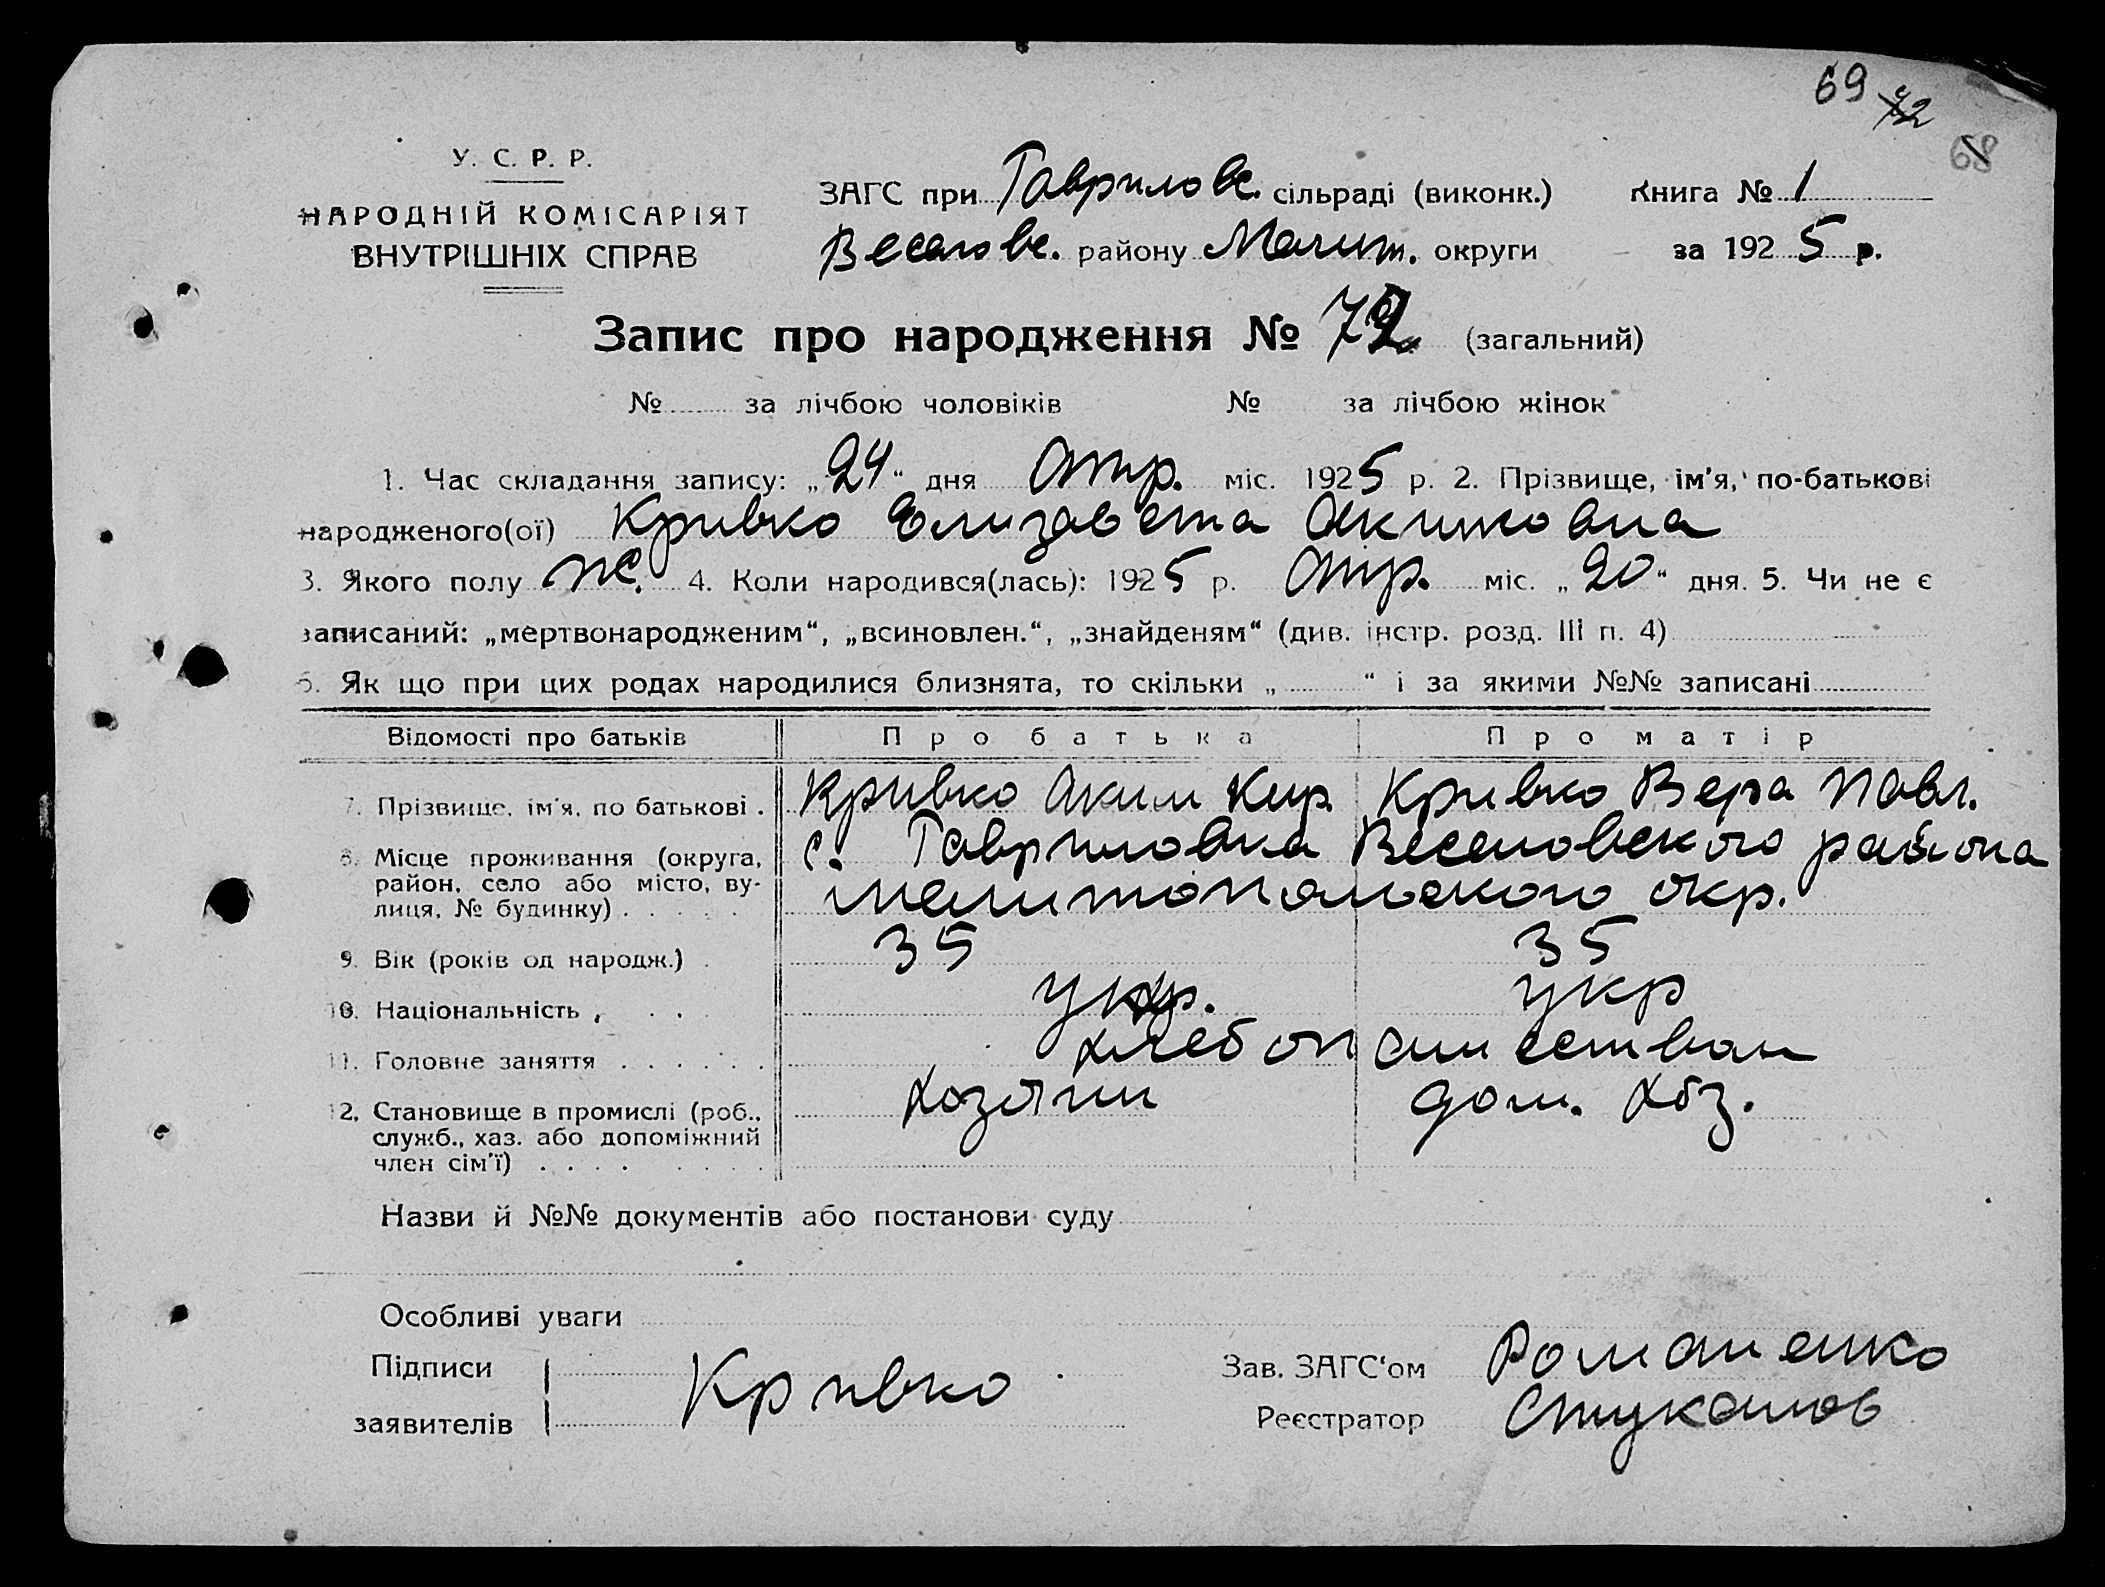 69 72
68
У. С. Р. Р.
НАРОДНІЙ КОМІСАРІЯТ
ВНУТРІШНІХ СПРАВ
ЗАГС при Гавриловс. сільраді (виконк.) Книга № 1
Веселовс. району Мелит. округи за 1925 р.
Запис про народження № 72 (загальний)
№ за лічбою чоловіків № за лічбою жінок
1. Час складання запису: „24“ дня Апр. міс. 1925 р. 2. Прізвище, ім'я, по-батькові
народженого(ої) Кривко Елизавета Акимовна
3. Якого полу ж. 4. Коли народився(лась): 1925 р. Апр. міс. „20“ дня. 5. Чи не є
записаний: „мертвонародженим“, „всиновлен.“, „знайденям“ (див. інстр. розд. III п. 4)
6. Як що при цих родах народилися близнята, то скільки „ “ і за якими №№ записані
Відомості про батьків Про батька Про матір
7. Прізвище, ім'я, по батькові . Кривко Аким Кир. Кривко Вера Павл.
8. Місце проживання (округа, с. Гавриловка Веселовского района
район, село або місто, ву-
лиця, № будинку) . . . . . Мелитопольского окр.
9. Вік (років од народж.) . 35 35
10. Національність . . . укр. укр
11. Головне заняття . . . . . . хлебопашеством
12. Становище в промислі (роб., хозяин дом. хоз.
служб., хаз. або допоміжний
член сім'ї) . . . . . . . .
Назви й №№ документів або постанови суду
Особливі уваги
Підписи Кривко Зав. ЗАГС'ом Романенко
заявителів Реєстратор Стукалов